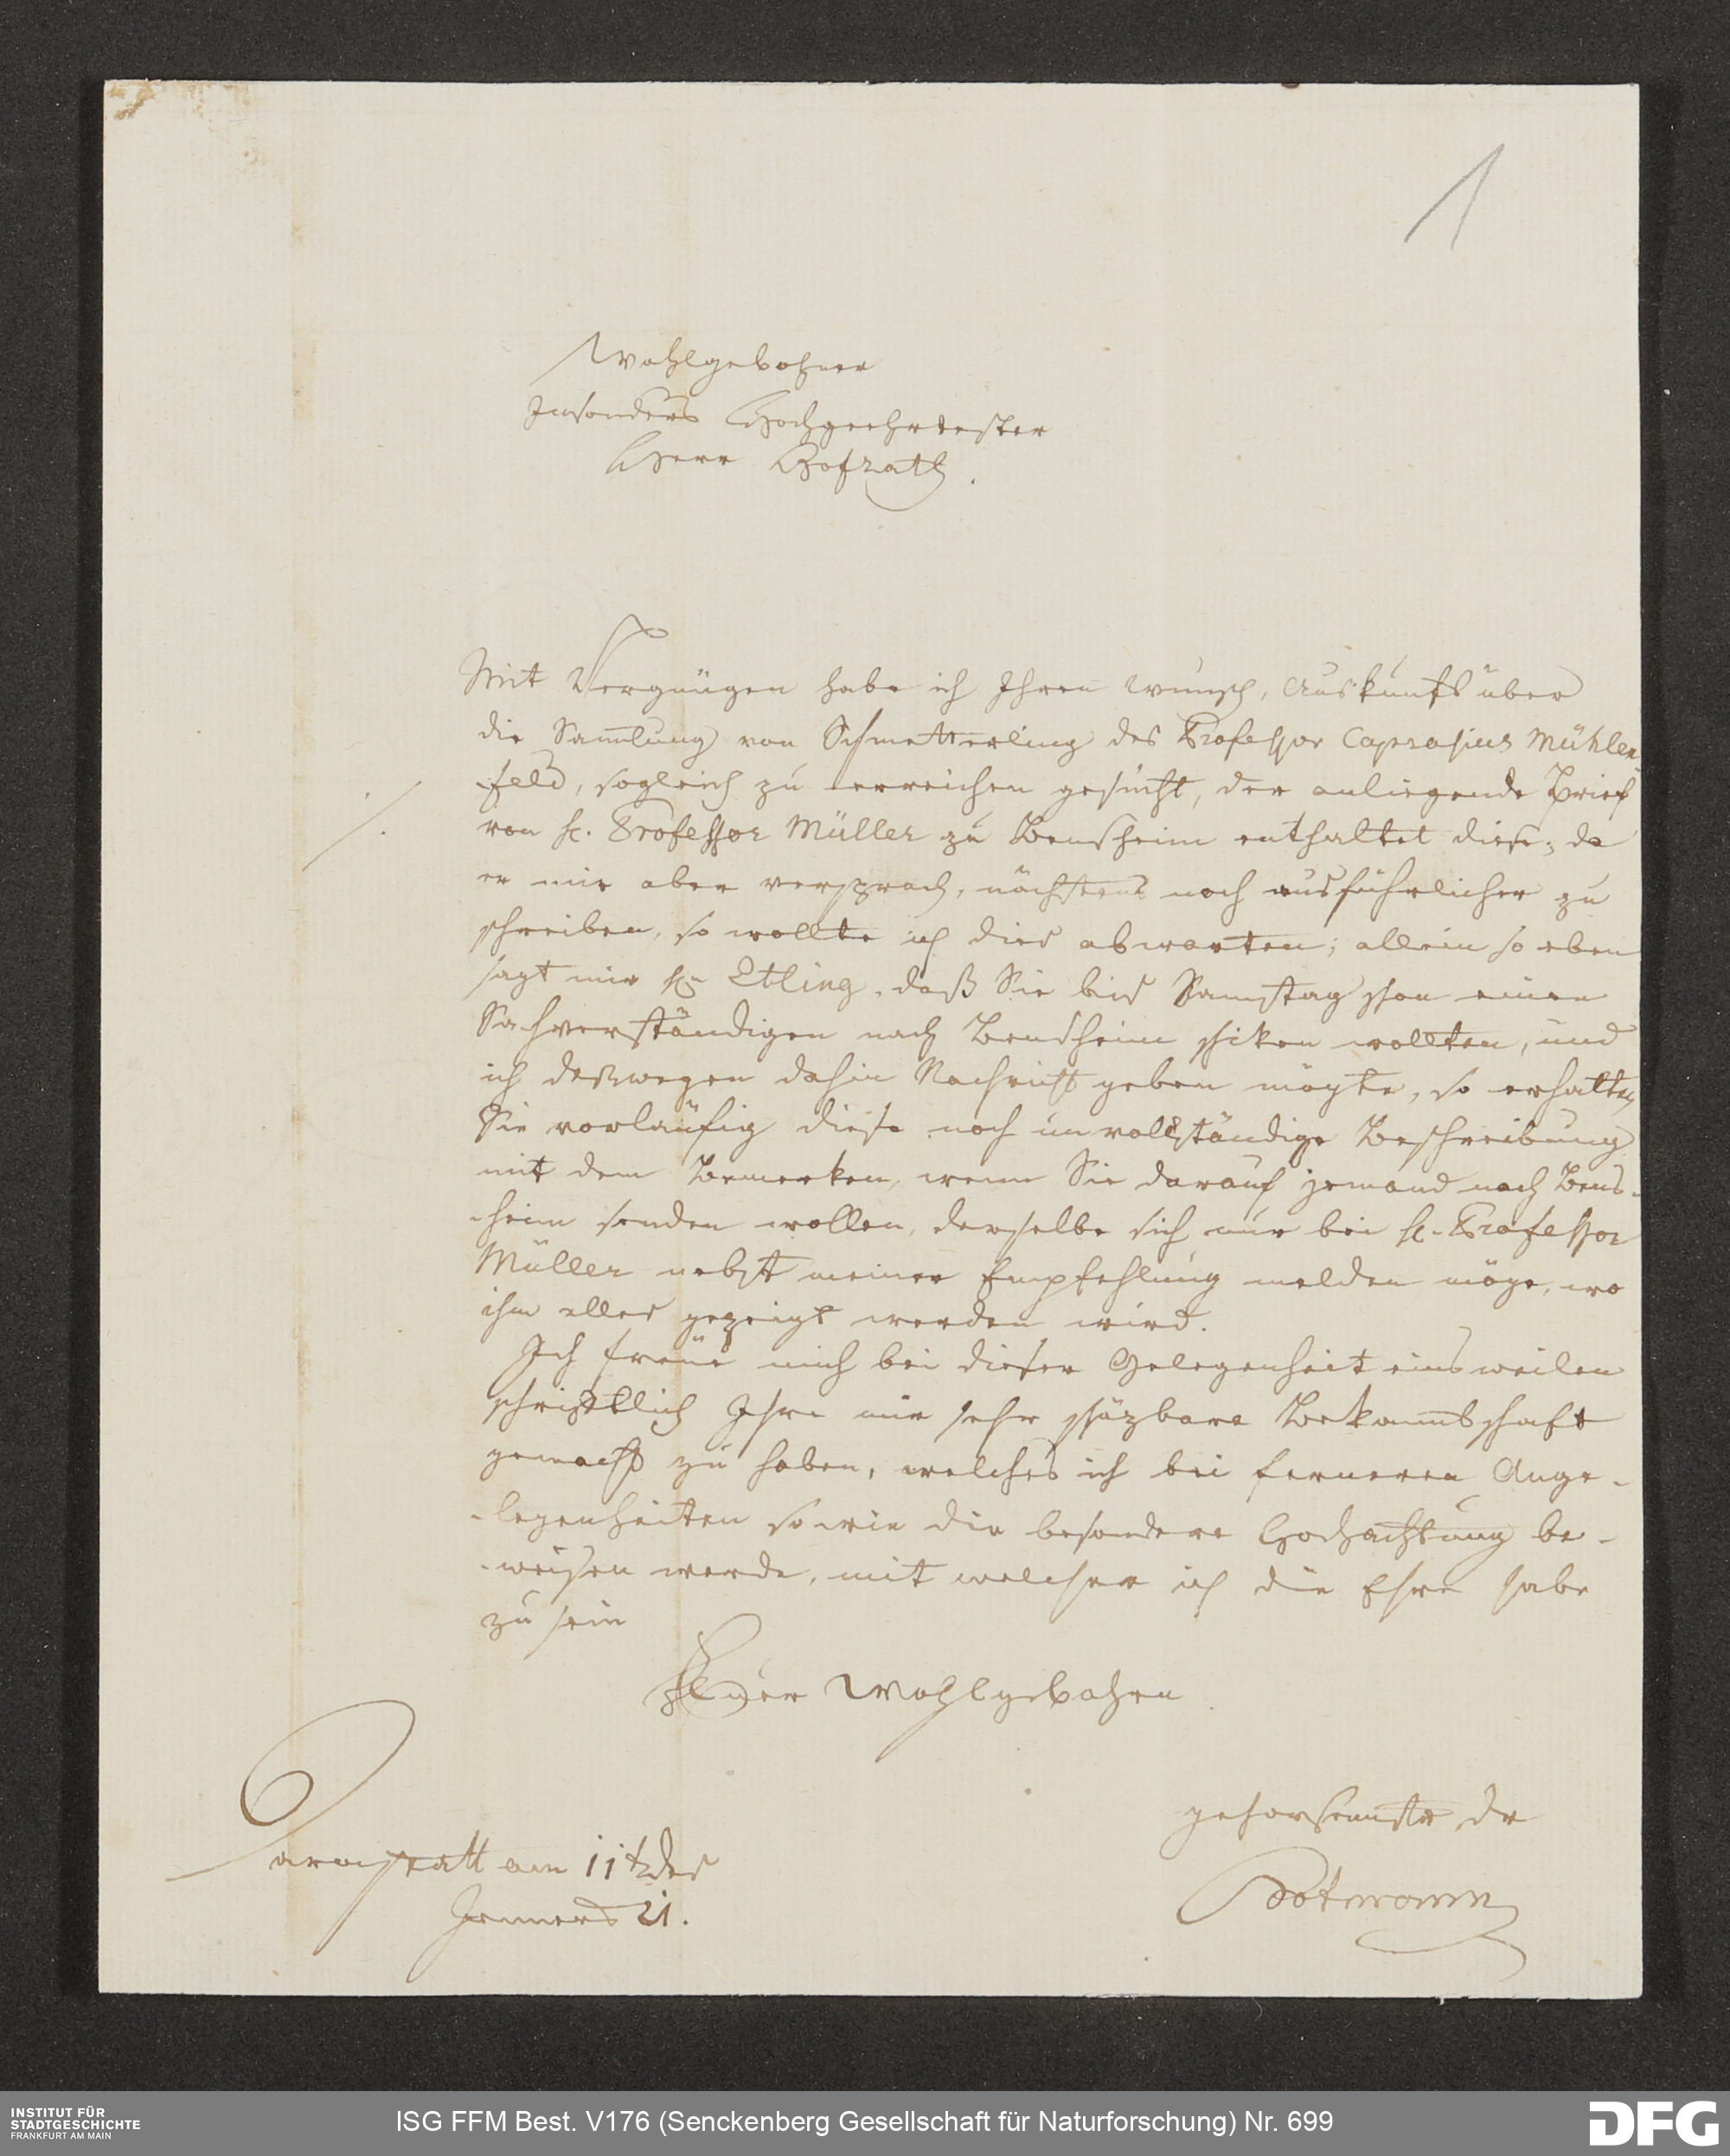 1
Wohlgebohrner
Insonders Hochgeehrtester
Herr Hofrath.
Mit Vergnügen habe ich Ihren Wunsch, Auskunft über
die Samlung von Schmetterling des Professor Caprasius Mühlen-
feld, sogleich zu erreichen gesucht, der anliegende Brief
von H. Professor Müller zu Bensheim enthaltet diese; da
er mir aber versprach, nächstens noch ausführlicher zu
schreiben, so wollte ich dies abwarten; allein so eben
sagt mir Hr Etling, daß Sie bis Samstag schon einen
Sachverständigen nach Bensheim schiken wollten, und
ich deßwegen dahin Nachricht geben mögte, so erhalten
Sie vorläufig diese noch unvollständige Beschreibung
mit dem Bemerken, wenn Sie darauf jemand nach Bens-
-heim senden wollen, derselbe sich nur bei H. Professor
Müller nebst meiner Empfehlung melden möge, wo
ihm alles gezeigt werden wird.
Ich freue mich bei dieser Gelegenheit einsweilen
schriftlich Ihre mir sehr schäzbare Bekanntschaft
gemacht zu haben, welches ich bei ferneren Ange-
-legenheiten so wie die besondere Hochachtung be-
-weisen werde, mit welcher ich die Ehre habe
zu sein
Euer Wohlgebohren
gehorsamster Dr
Darmstatt am 11t des
Jenners 21.
INSTITUT FÜR
STADTGESCHICHTE
FRANKFURT AM MAIN
ISG FFM Best. V176 (Senckenberg Gesellschaft für Naturforschung) Nr. 699
DFG